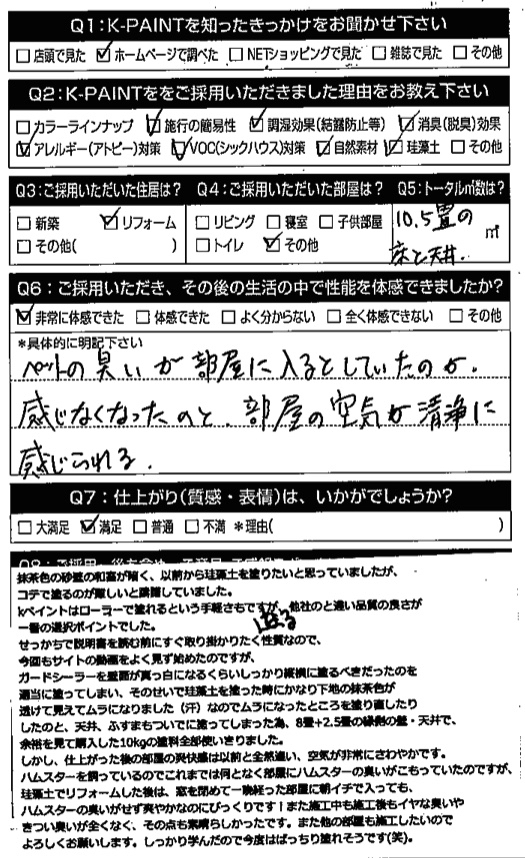 Q1:K-PAINTを知ったきっかけをお聞かせ下さい
□店頭で見た ☑ホームページで調べた □NETショッピングで見た □雑誌で見た □その他
Q2:K-PAINTををご採用いただきました理由をお教え下さい
□カラーラインナップ ☑施行の簡易性 ☑調湿効果(結露防止等) ☑消臭(脱臭)効果
☑アレルギー(アトピー)対策 ☑VOC(シックハウス)対策 ☑自然素材 ☑珪藻土 □その他
Q3:ご採用いただいた住居は?
□新築 ☑リフォーム
□その他( )
Q4:ご採用いただいた部屋は?
□リビング □寝室 □子供部屋
□トイレ ☑その他
Q5:トータル㎡数は?
10.5畳の
床と天井. ㎡
Q6:ご採用いただき、その後の生活の中で性能を体感できましたか?
☑非常に体感できた □体感できた □よく分からない □全く体感できない □その他
*具体的に明記下さい
ペットの臭いが部屋に入るとしていたのが.
感じなくなったのと、部屋の空気が清浄に
感じられる.
Q7:仕上がり(質感・表情)は、いかがでしょうか?
□大満足 ☑満足 □普通 □不満 *理由( )
抹茶色の砂壁の和室が暗く、以前から珪藻土を塗りたいと思っていましたが、
コテで塗るのが難しいと躊躇していました。
kペイントはローラーで塗れるという手軽さもですが、他社のと違い品質の良さが
一番の選択ポイントでした。
せっかちで説明書を読む前にすぐ取り掛かりたく性質なので、
今回もサイトの動画をよく見ず始めたのですが、
ガードシーラーを壁面が真っ白になるくらいしっかり縦横に塗るべきだったのを
適当に塗ってしまい、そのせいで珪藻土を塗った時にかなり下地の抹茶色が
透けて見えてムラになりました（汗）なのでムラになったところを塗り直したり
したのと、天井、ふすまもついでに塗ってしまった為、8畳+2.5畳の縁側の壁・天井で、
余裕を見て購入した10kgの塗料全部使いきりました。
しかし、仕上がった後の部屋の爽快感は以前と全然違い、空気が非常にさわやかです。
ハムスターを飼っているのでこれまでは何となく部屋にハムスターの臭いがこもっていたのですが、
珪藻土でリフォームした後は、窓を閉めて一晩経った部屋に朝イチで入っても、
ハムスターの臭いがせず爽やかなのにびっくりです！また施工中も施工後もイヤな臭いや
きつい臭いが全くなく、その点も素晴らしかったです。また他の部屋も施工したいので
よろしくお願いします。しっかり学んだので今度はばっちり塗れそうです(笑)。